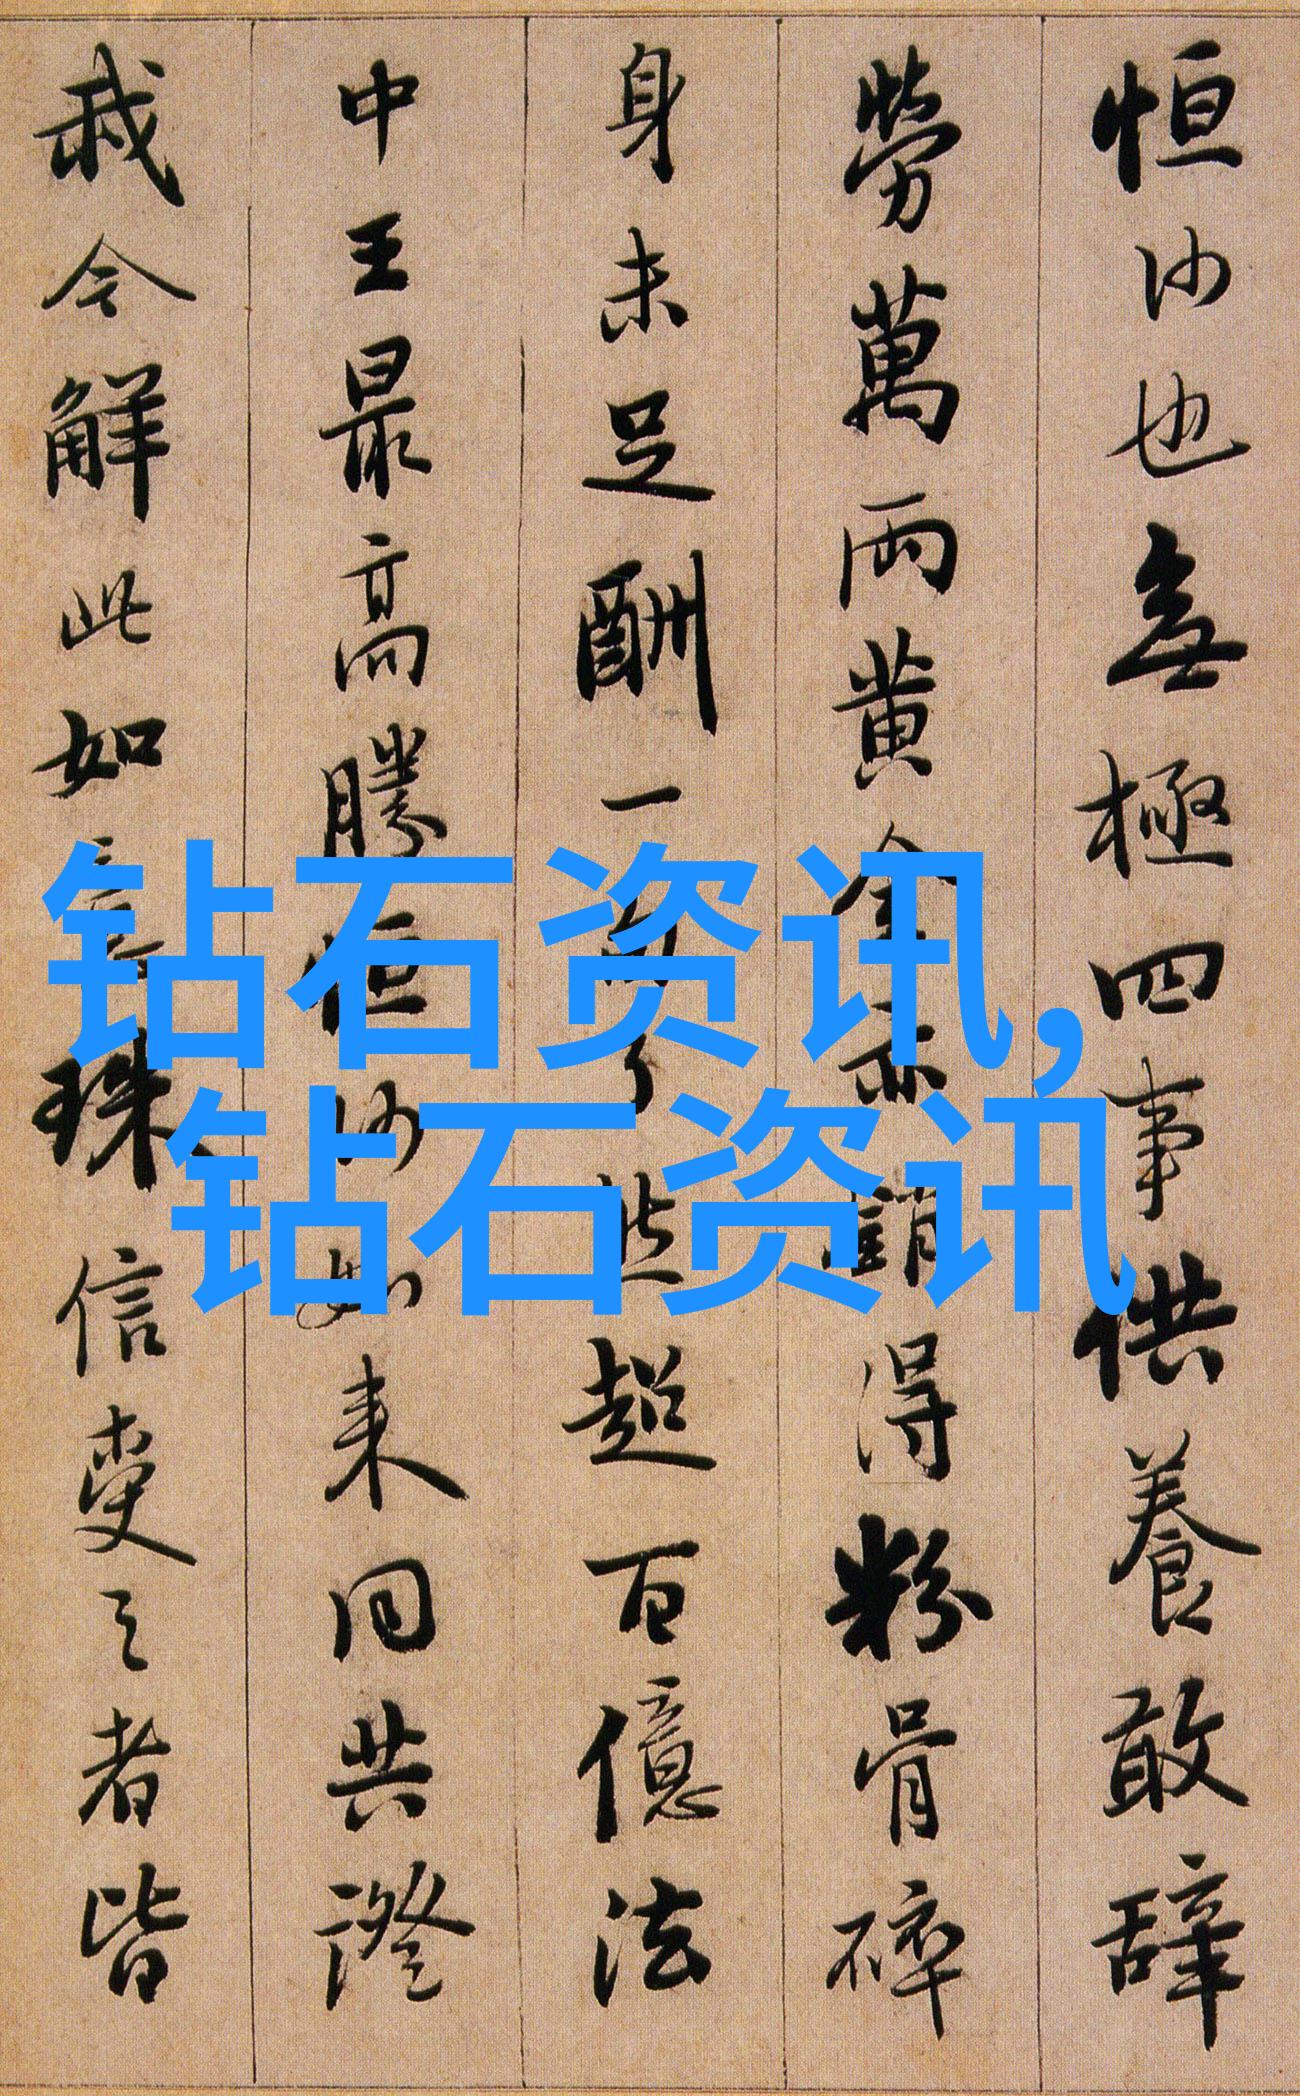 恒沙也無極四事供養敢辝
勞萬兩黄金亦銷得粉骨碎
身未足酬一句了然超百億法
中王最高勝恒沙如来同共證
我今解此如意珠信受之者皆
钻石资讯,
钻石资讯